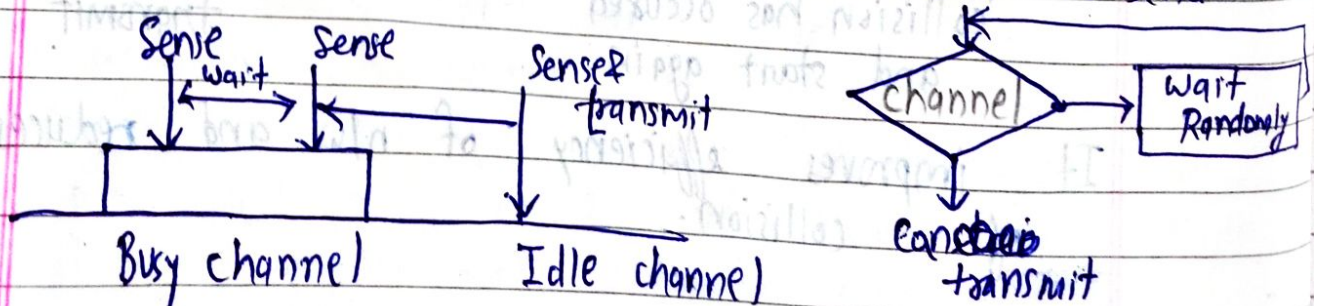 Sense
Sense
wait
Sense&
transmit
Busy channel
Idle channel
channel
Wait
Randomly
Can
transmit